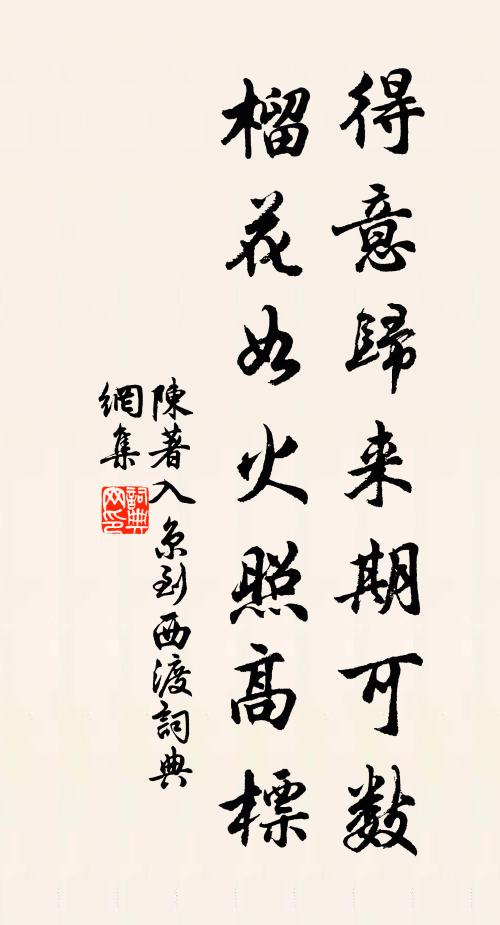 得意歸来期可數
榴花如火照高標
陳著入京到西渡詞典
網集
詞典網印